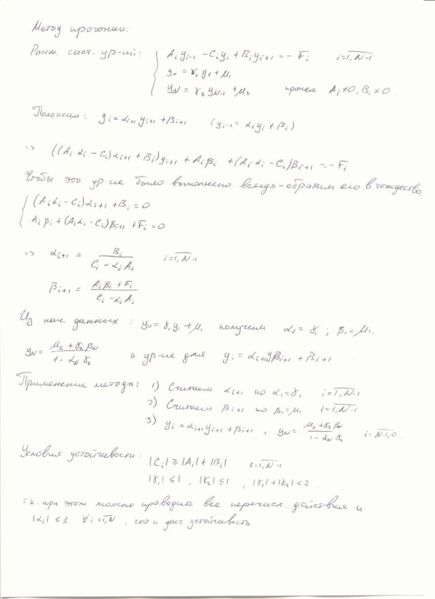 Метод прогонки:
Рассм. сист. ур-ий: { A_i y_{i-1} - C_i y_i + B_i y_{i+1} = - F_i   i=\overline{1,N-1}
y_0 = γ_1 y_1 + μ_1
y_N = γ_2 y_{N-1} + μ_2   причем A_i ≠ 0, B_i ≠ 0
Положим: y_i = α_{i+1} y_{i+1} + β_{i+1}   (y_{i-1} = α_i y_i + β_i)
⇒ ((A_i α_i - C_i) α_{i+1} + B_i) y_{i+1} + A_i β_i + (A_i α_i - C_i) β_{i+1} = - F_i
Чтобы это ур-ие было выполнено всегда - обратим его в тождество
{ (A_i α_i - C_i) α_{i+1} + B_i = 0
A_i β_i + (A_i α_i - C_i) β_{i+1} + F_i = 0
⇒ α_{i+1} = B_i / (C_i - α_i A_i)   i=\overline{1,N-1}
β_{i+1} = (A_i β_i + F_i) / (C_i - α_i A_i)
Из нач. данных: y_0 = γ_1 y_1 + μ_1 получим α_1 = γ_1 ; β_1 = μ_1.
y_N = (μ_2 + γ_2 β_N) / (1 - α_N γ_2) и ур-ие для y_i = α_{i+1} y_{i+1} + β_{i+1}.
Применение метода: 1) Считаем α_{i+1} по α_1 = γ_1   i=\overline{1,N-1}
2) Считаем β_{i+1} по β_1 = μ_1   i=\overline{1,N-1}
3) y_i = α_{i+1} y_{i+1} + β_{i+1} , y_N = (μ_2 + γ_2 β_N) / (1 - α_N γ_2)   i=\overline{N-1,0}.
Условия устойчивости: |C_i| ≥ |A_i| + |B_i|   i=\overline{1,N-1}
|γ_1| ≤ 1 , |γ_2| ≤ 1 , |γ_1| + |γ_2| < 2
т.к. при этом можно проводить все перечисл. действия и
|α_i| ≤ 1 ∀ i=\overline{1,N} , что и даст устойчивость